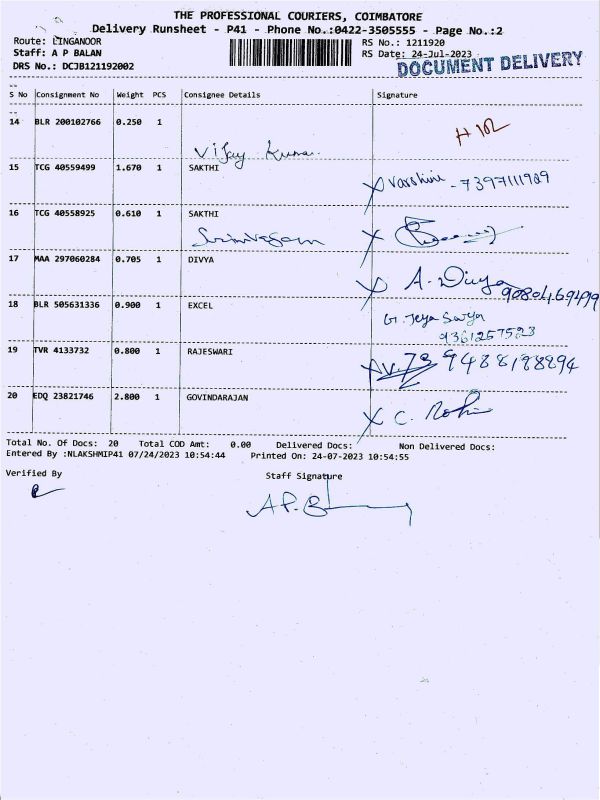 THE PROFESSIONAL COURIERS, COIMBATORE
Delivery Runsheet - P41 - Phone No.:0422-3505555 - Page No.:2
Route: LINGANOOR RS No.: 1211920
Staff: A P BALAN RS Date: 24-Jul-2023
DRS No.: DCJB121192002 DOCUMENT DELIVERY
S No Consignment No Weight PCS Consignee Details Signature
14 BLR 200102766 0.250 1
Vijay Kumar
15 TCG 40559499 1.670 1 SAKTHI
Varshini - 7397111989
16 TCG 40558925 0.610 1 SAKTHI
Srinivasan
17 MAA 297060284 0.705 1 DIVYA
A. Divya
18 BLR 505631336 0.900 1 EXCEL
G. Jeya Surya
9361257523
19 TVR 4133732 0.800 1 RAJESWARI
9488198894
20 EDQ 23821746 2.800 1 GOVINDARAJAN
Total No. Of Docs: 20 Total COD Amt: 0.00 Delivered Docs: Non Delivered Docs:
Entered By :NLAKSHMIP41 07/24/2023 10:54:44 Printed On: 24-07-2023 10:54:55
Verified By Staff Signature
A P. B